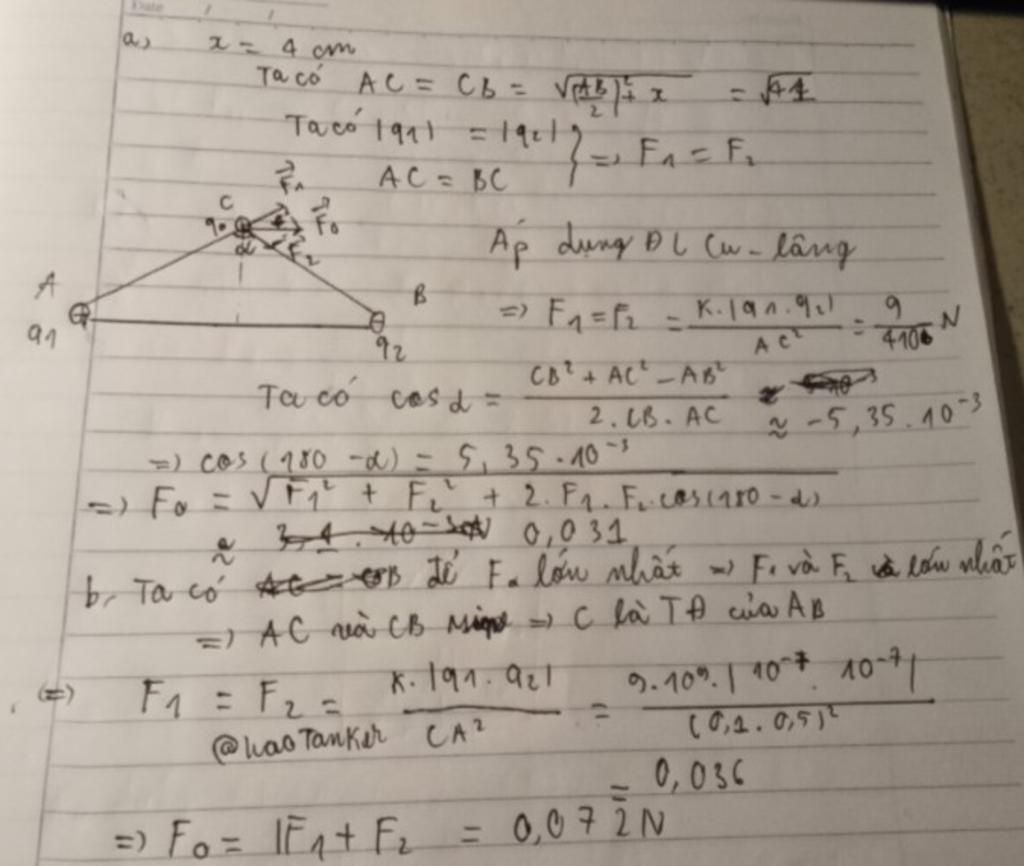 Date / /
a, x = 4 cm
Ta có AC = CB = √((AB/2)² + x) = √41
Ta có |q1| = |q2|
AC = BC } => F1 = F2
C
F1
q0
F0
α
F2
A
B
q1
q2
Áp dụng ĐL Cu-lông
=> F1 = F2 = K.|q1.q2| / AC² = 9/410 N
Ta có cos α = (CB² + AC² - AB²) / (2.CB.AC) ≈ -5,35.10⁻³
=> cos(180 - α) = 5,35.10⁻³
=> F0 = √(F1² + F2² + 2.F1.F2.cos(180 - α))
≈ 0,031
b, Ta có để F0 lớn nhất => F1 và F2 lớn nhất
=> AC và CB => C là TĐ của AB
(=) F1 = F2 = K.|q1.q2| / CA² = 9.10⁹.|10⁻⁷.10⁻⁷| / (0,1.0,5)²
@haoTanker
= 0,036
=> F0 = |F1 + F2 = 0,072N